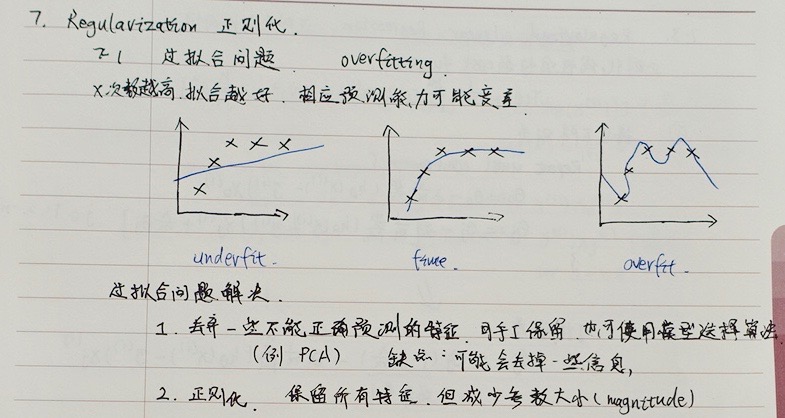 7. Regularization 正则化.
7.1 过拟合问题. overfitting.
x次数越高.拟合越好.相应预测能力可能变差.
underfit. fine. overfit.
过拟合问题解决.
1. 丢弃一些不能正确预测的特征.可手工保留.也可使用模型选择算法.
(例 PCA) 缺点:可能会丢掉一些信息,
2. 正则化. 保留所有特征.但减少参数大小(magnitude)